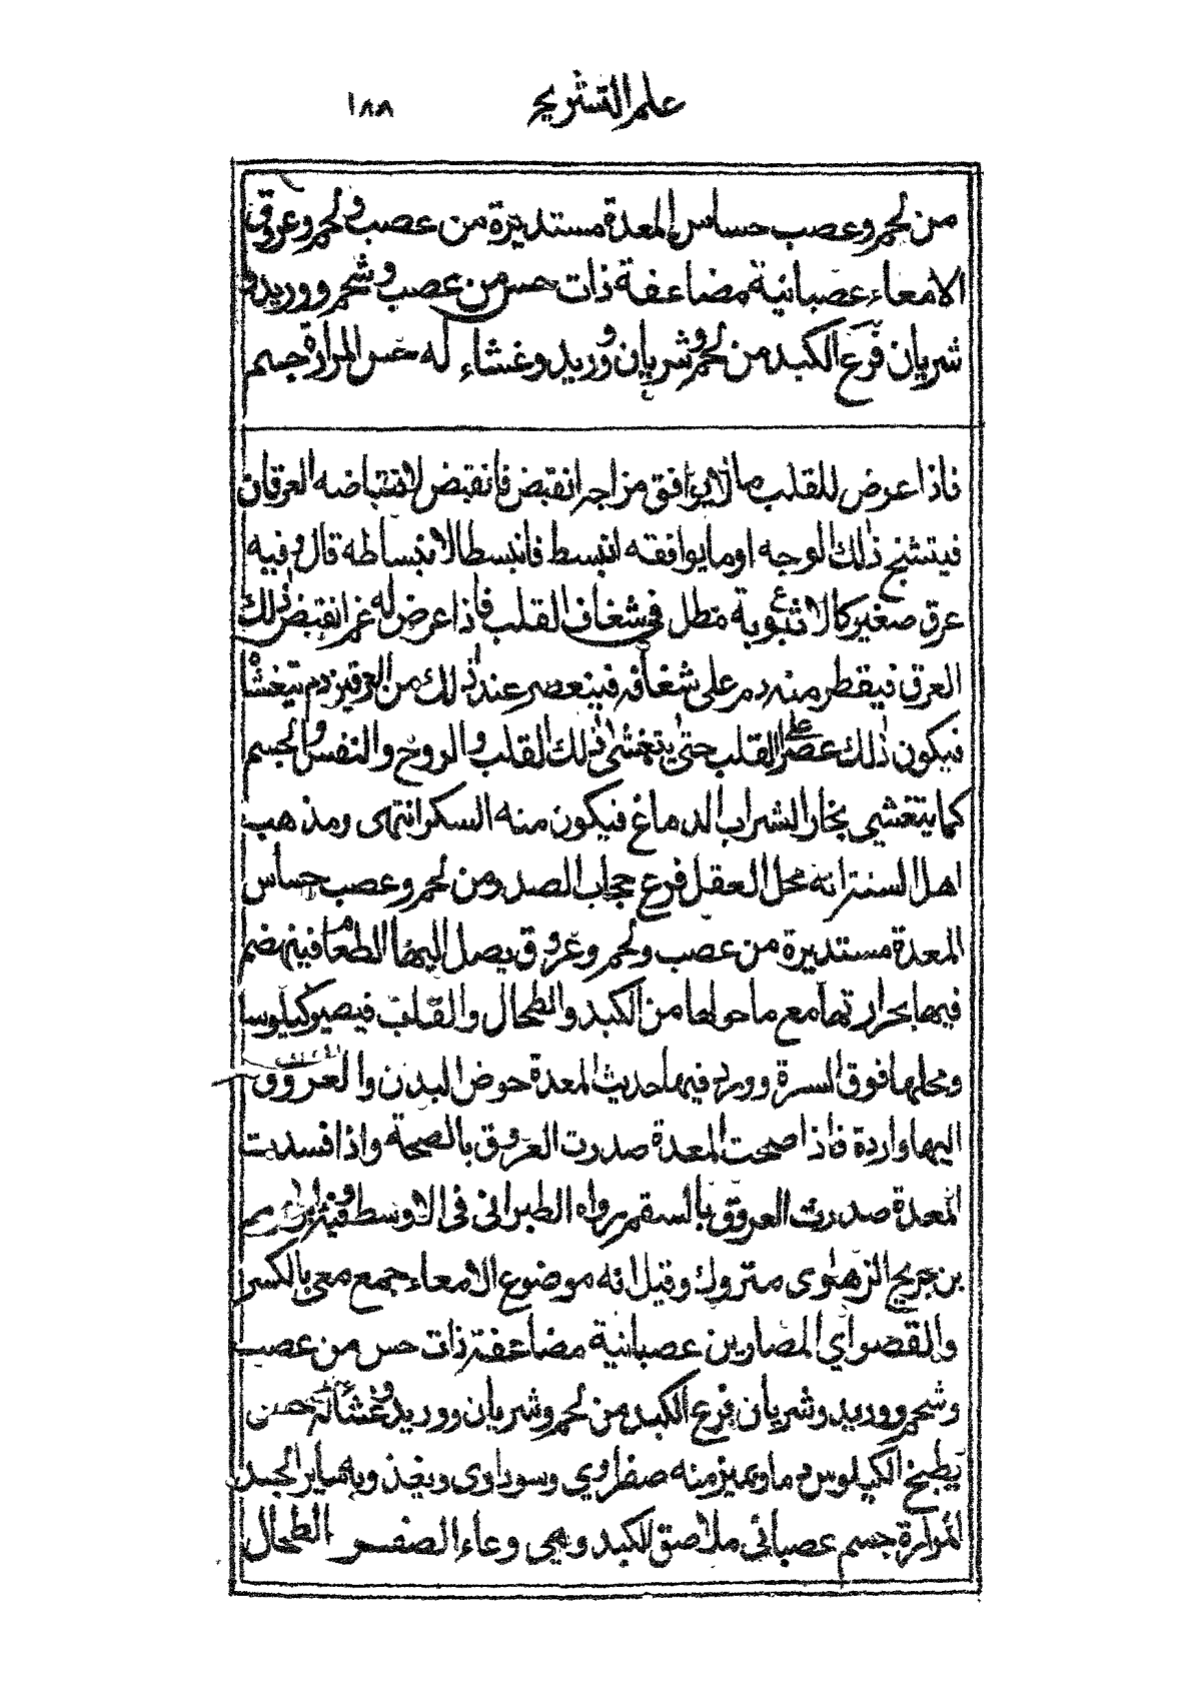 علم التشريح ١٨٨
من لحم وعصب حساس المعدة مستديرة من عصب ولحم وعرق
الامعاء عصبانية مضاعفة ذات حس من عصب وشحم ووريد و
شريان فرع الكبد من لحم وشريان ووريد وغشاء له حس المرارة جسم
فاذا عرض للقلب مالا يوافق مزاجه انقبض فانقبض لانقباضه العرقان
فيتشنج ذلك الوجه اوما يوافقه انبسط فانبسطا لانبساطه قال وفيه
عرق صغير كالانبوبة مطل في شغاف القلب فاذا عرض له غم انقبض ذلك
العرق فيقطر منه دم على شغافه فينعصر عند ذلك من العرقين دم يتغشاه
فيكون ذلك عصرا على القلب حتى يتغشى ذلك القلب والروح والنفس والجسم
كما يتغشى بخار الشراب الدماغ فيكون منه السكر انتهى ومذهب
اهل السنة انه محل العقل فرع حجاب الصدر من لحم وعصب حساس
المعدة مستديرة من عصب ولحم وعروق يصل اليها الطعام فينهضم
فيها بحرارتها مع ما حولها من الكبد والطحال والقلب فيصير كيلوسا
ومحلها فوق السرة وورد فيها حديث المعدة حوض البدن والعروق
اليها واردة فاذا صحت المعدة صدرت العروق بالصحة واذا فسدت
المعدة صدرت العروق بالسقم رواه الطبراني في الاوسط وفيه ابراهيم
بن جريج الرهاوى متروك وقيل انه موضوع الامعاء جمع معى بالكسر
والقصر اي المصارين عصبانية مضاعفة ذات حس من عصب
وشحم ووريد وشريان فرع الكبد من لحم وشريان ووريد وغشاء له حس
يطبخ الكيلوس دما ويميز منه صفراوي وسوداوى ويغذو به ساير الجسد
المرارة جسم عصباني ملاصق الكبد وهي وعاء الصفر الطحال